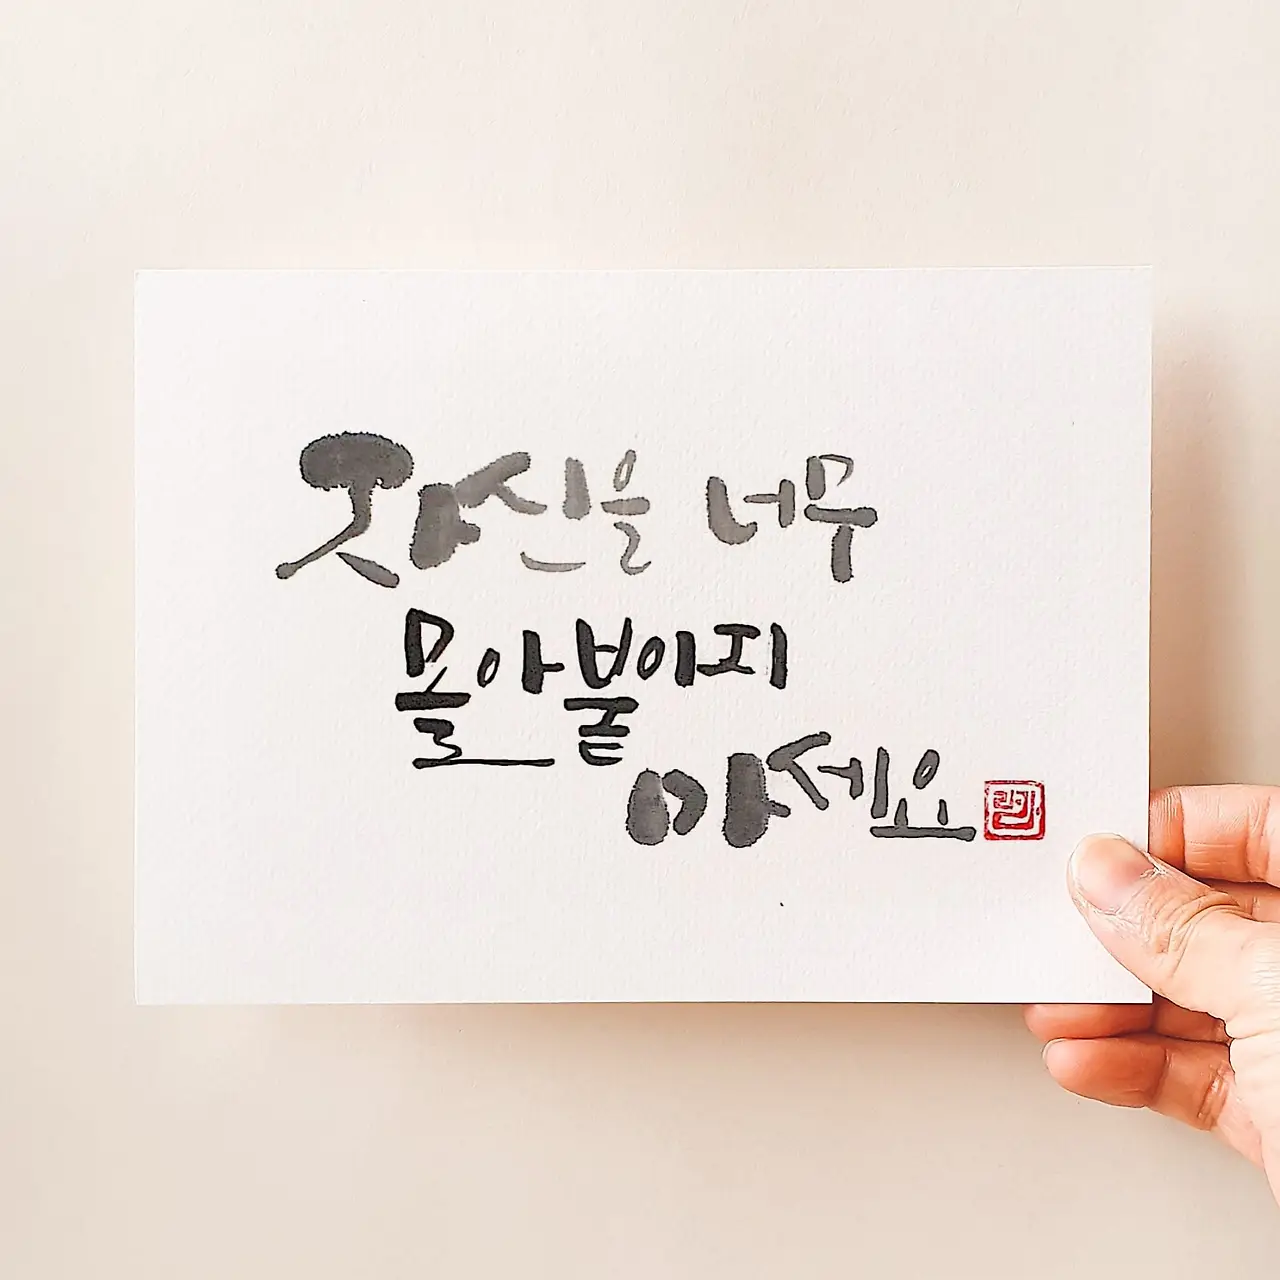 자신을 너무
몰아붙이지
마세요